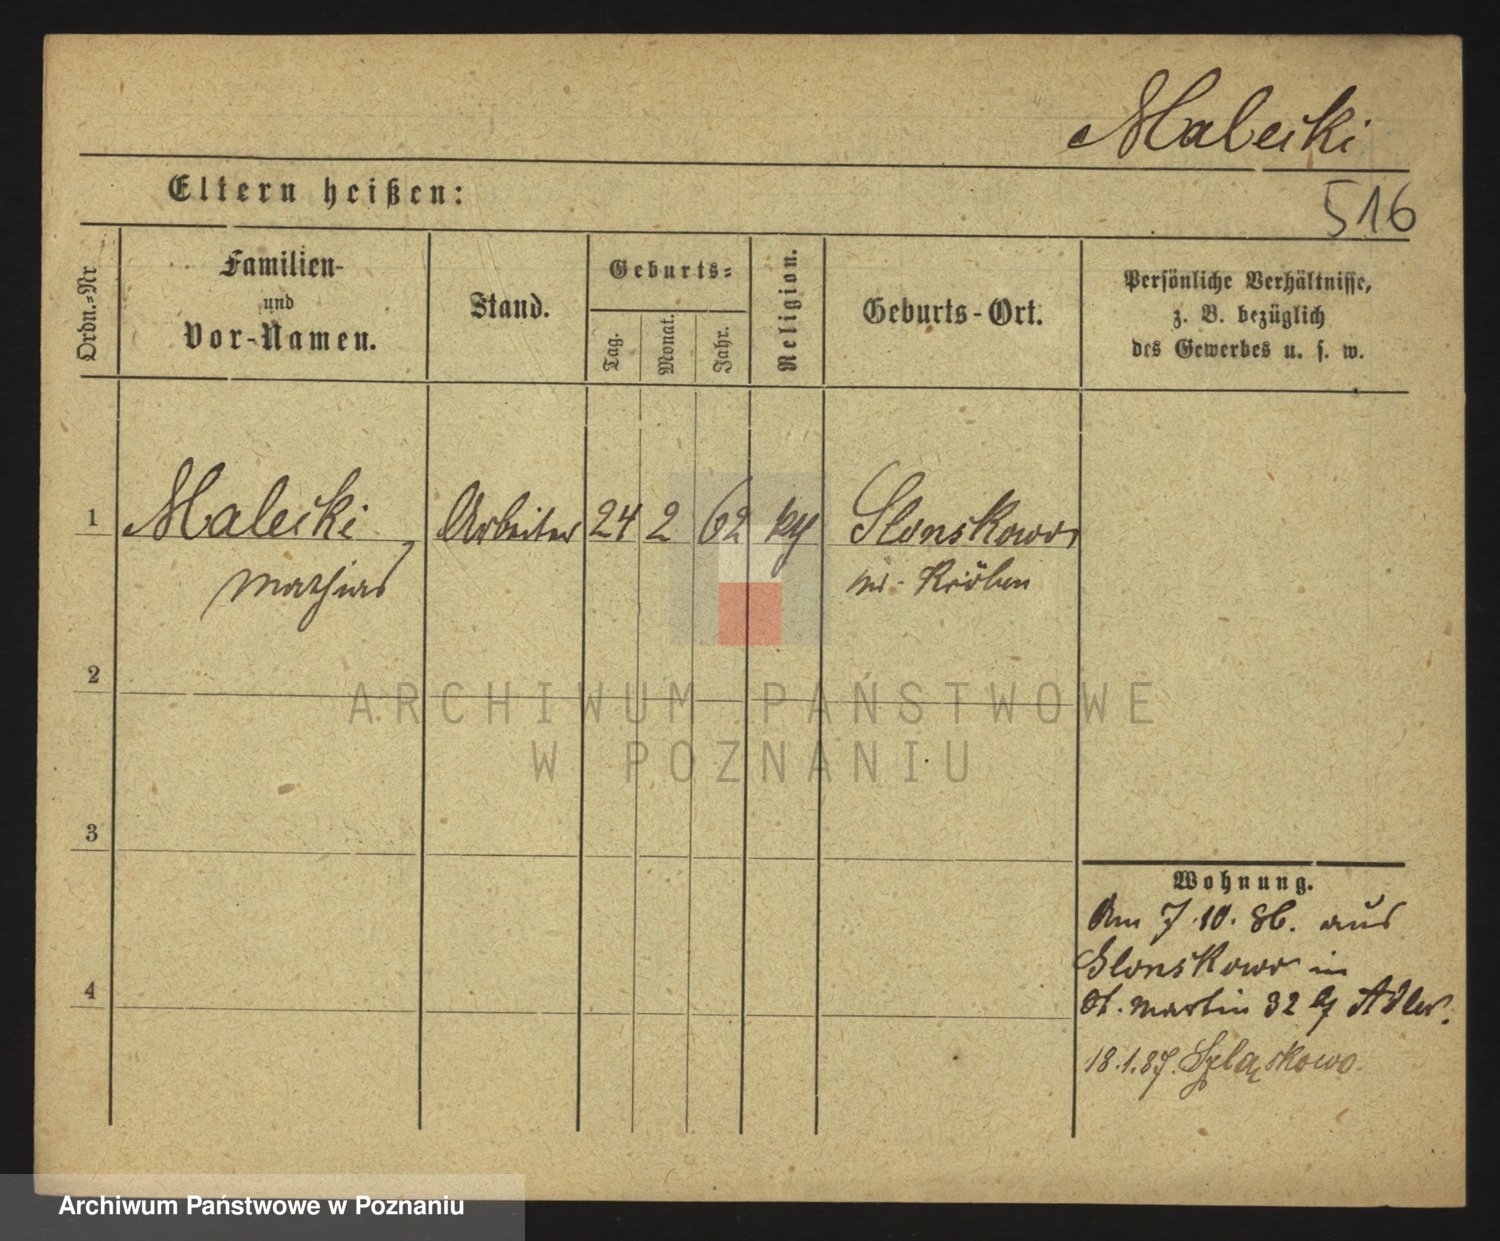 Malecki
Eltern heißen:
516
Ordn.-Nr
Familien-
und
Vor-Namen.
Stand.
Geburts-
Tag.
Monat.
Jahr.
Religion.
Geburts-Ort.
Persönliche Verhältnisse,
z. B. bezüglich
des Gewerbes u. s. w.
1
Malecki
Arbeiter
24
2
62
Slonskowo
Mathias
Kr. Kröben
2
ARCHIWUM PAŃSTWOWE
W POZNANIU
3
Wohnung.
Am 7.10.86. aus
Slonskowo in
4
St. Martin 32 b/ Adler.
18.1.87. Szląskowo.
Archiwum Państwowe w Poznaniu